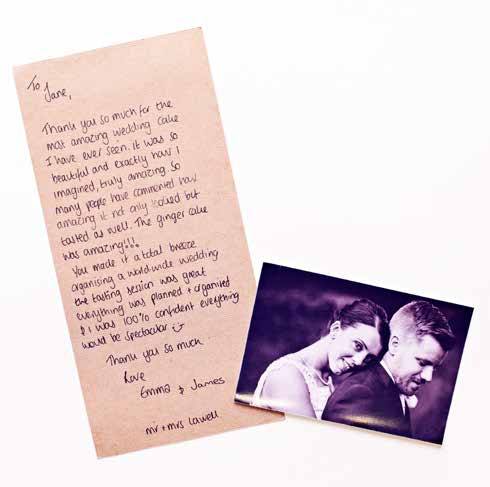 To
Jane,
Thank you so much for the
most amazing wedding cake
I have ever seen. It was so
beautiful and exactly how I
imagined, truly amazing. So
many people have commented how
amazing it not only looked but
tasted as well. The ginger cake
was amazing!!!
You made it a total breeze
organising a world-wide wedding
the tasting session was great
everything was planned + organised
& I was 100% confident everything
would be spectacular
Thank you so much
Love
Emma & James
mr + mrs Lawell